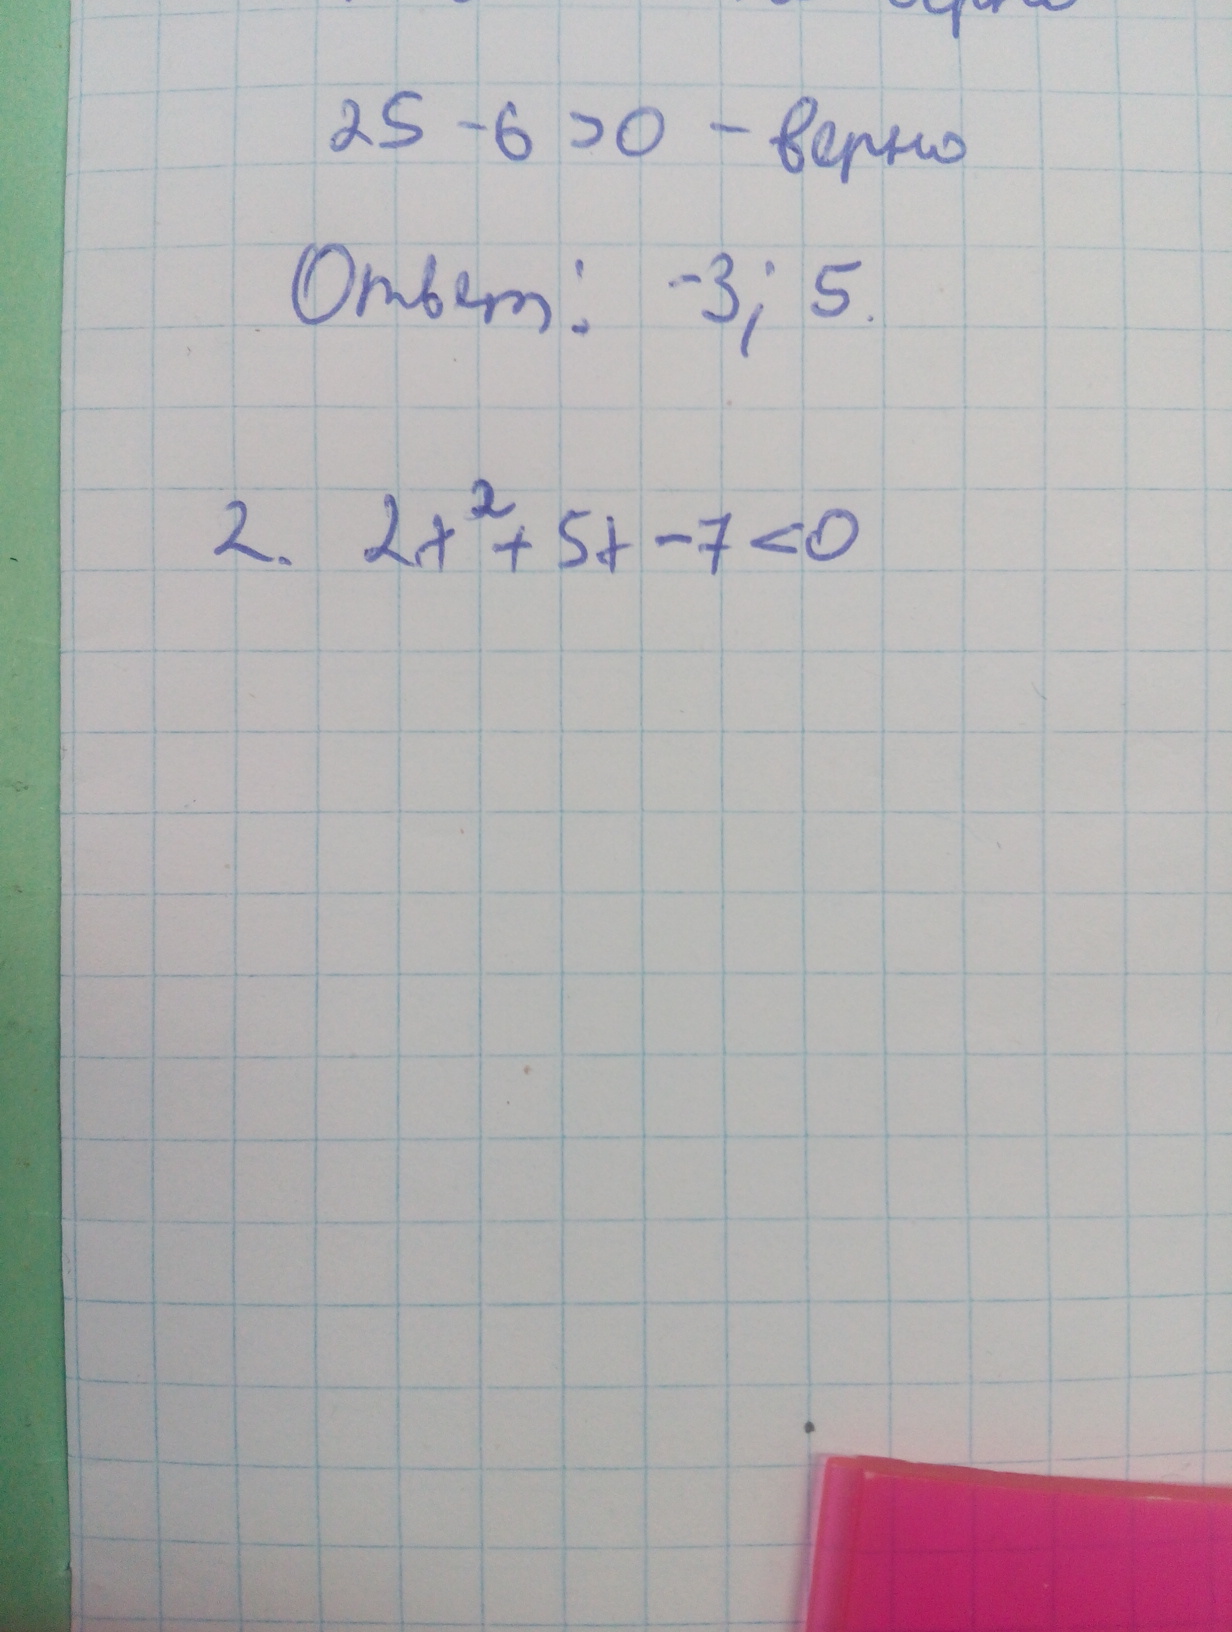 25 - 6 > 0 - верно
Ответ: -3; 5.
2. 2t² + 5t - 7 < 0